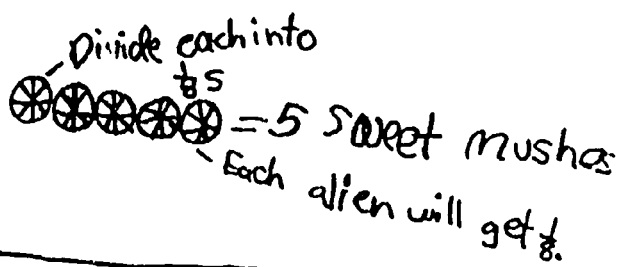 Divide each into
1/8 s
= 5 sweet mushes
Each alien will get 1/8.